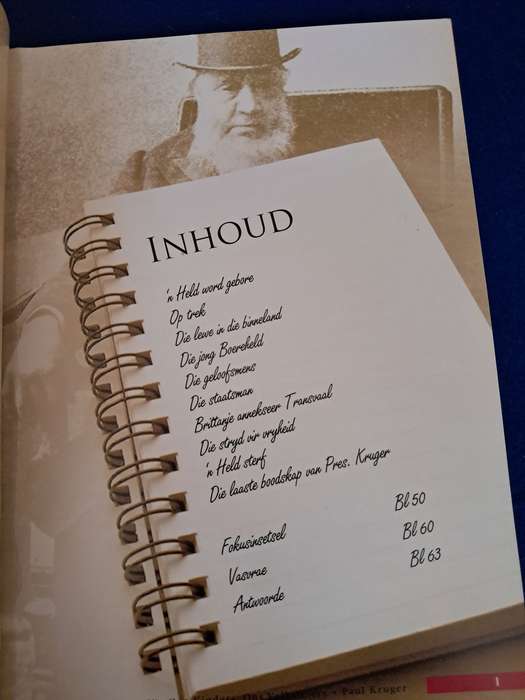 INHOUD
'n Held word gebore
Op trek
Die lewe in die binneland
Die jong Boereheld
Die geloofsmens
Die staatsman
Brittanje annekseer Transvaal
Die stryd vir vryheid
'n Held sterf
Die laaste boodskap van Pres. Kruger
Fokusinsetsel Bl 50
Vasvrae Bl 60
Antwoorde Bl 63
Kinders, Ons • Paul Kruger
1